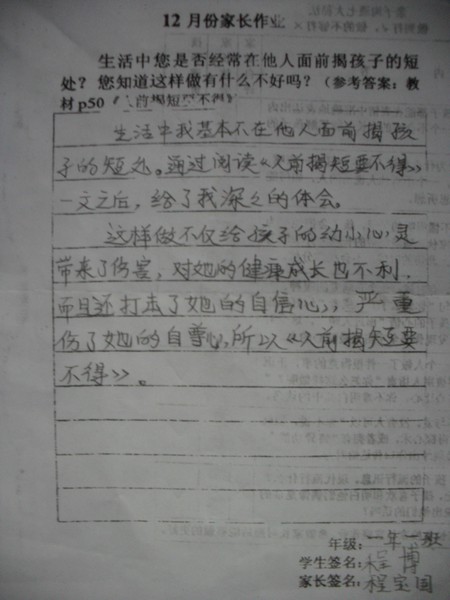 12月份家长作业
生活中您是否经常在他人面前揭孩子的短
处？您知道这样做有什么不好吗？（参考答案：教
材p50《人前揭短要不得》
生活中我基本不在他人面前揭孩
子的短处。通过阅读《人前揭短要不得》
一文之后，给了我深深的体会。
这样做不仅给孩子的幼小心灵
带来了伤害，对她的健康成长也不利，
而且还打击了她的自信心，严重
伤了她的自尊心，所以《人前揭短要
不得》。
年级：一年一班
学生签名：程博
家长签名：程宝国